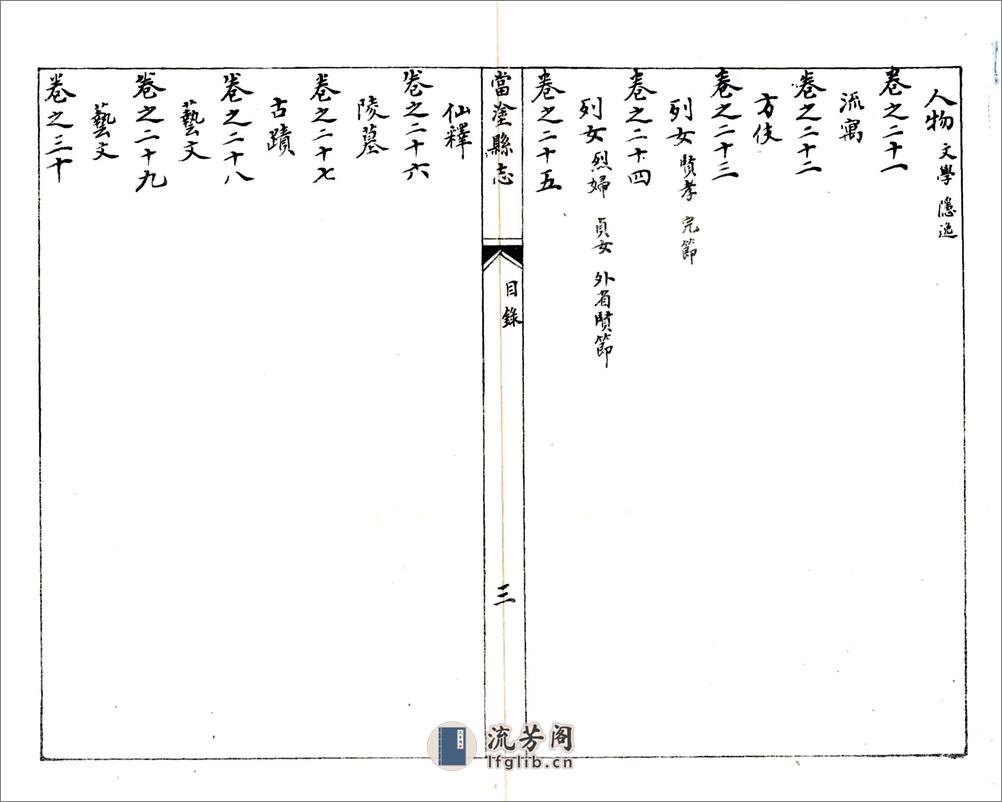 人物 文學 隱逸
卷之二十一
流寓
卷之二十二
方伎
卷之二十三
列女 賢孝 完節
卷之二十四
列女 烈婦 貞女 外省賢節
卷之二十五
當塗縣志 目錄 三
仙釋
卷之二十六
陵墓
卷之二十七
古蹟
卷之二十八
藝文
卷之二十九
藝文
卷之三十
流芳阁
lfglib.cn